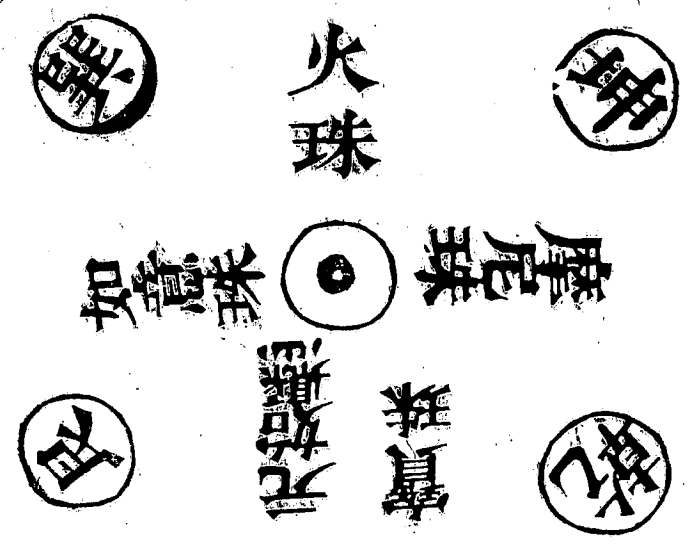 巽
火珠
坤
如意珠
摩尼珠
艮
元始懸
寶珠
乾